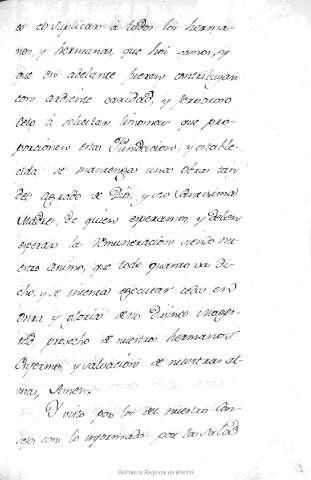 es el suplicar à todos los herma-
nos, y hermanas, que hoi somos, y
que en adelante fueren contribuyan
con ardiente caridad, y fervoroso
celo à solicitar limosnas que pro-
porcionen esta Fundacion, y estable-
cida se mantenga una obra tan
del agrado de Dios, y su Santisima
Madre, de quien esperamos, y debem
esperar la remuneracion siendo nu-
estro animo, que todo quanto va di-
cho, y se intenta egecutar ceda en
onra y gloria de su Divina Mages-
tad, provecho de nuestros hermanos
Enfermos, y salvacion de nuestras al-
mas, Amen.
Y visto por los del nuestro Con-
sejo, con lo informado por la Sala
Biblioteca Regional de Madrid